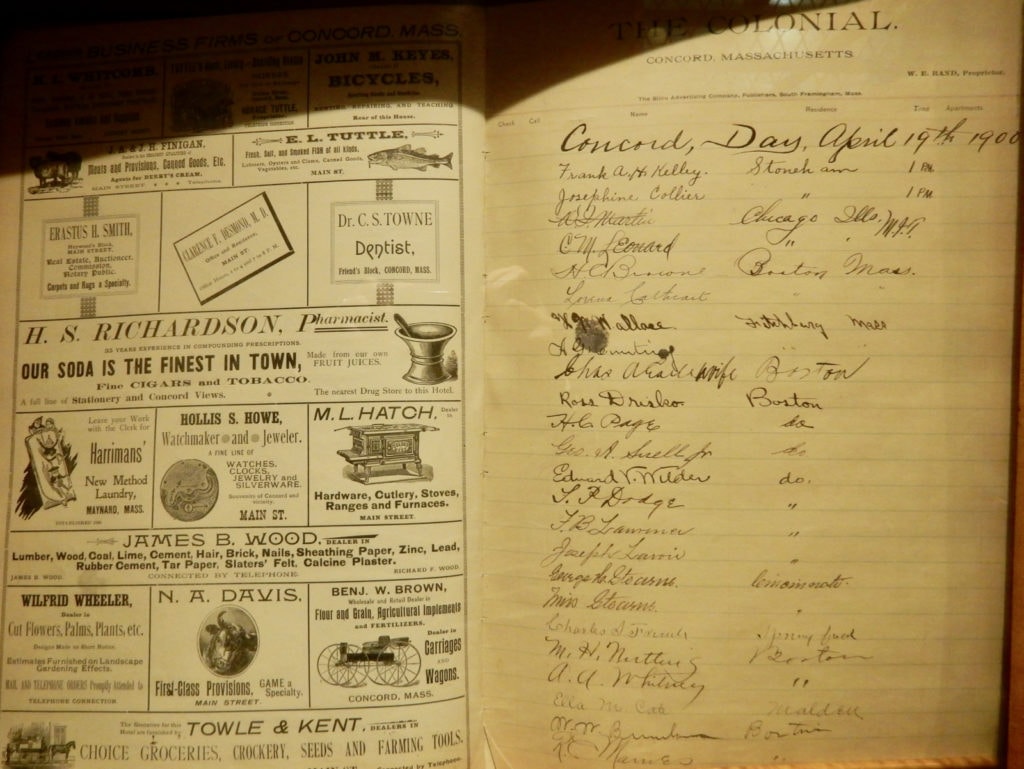 BUSINESS FIRMS OF CONCORD, MASS.
JOHN M. KEYES,
BICYCLES,
RENTING, REPAIRING, AND TEACHING
Rear of this House.
J. A. & J. H. FINIGAN,
Meats and Provisions, Canned Goods, Etc.
Agents for DERBY'S CREAM.
MAIN STREET. Telephone.
E. L. TUTTLE,
Fresh, Salt, and Smoked FISH of all kinds.
Lobsters, Oysters and Clams, Canned Goods,
Vegetables, etc.
MAIN ST.
ERASTUS H. SMITH,
Heywood's Block,
MAIN STREET,
Real Estate, Auctioneer,
Commission,
Notary Public.
Carpets and Rugs a Specialty.
CLARENCE F. DESMOND, M. D.
Office and Residence,
MAIN ST.
Dr. C. S. TOWNE
Dentist,
Friend's Block, CONCORD, MASS.
H. S. RICHARDSON, Pharmacist.
YEARS EXPERIENCE IN COMPOUNDING PRESCRIPTIONS.
OUR SODA IS THE FINEST IN TOWN,
Made from our own
FRUIT JUICES.
Fine CIGARS and TOBACCO.
A full line of Stationery and Concord Views.
The nearest Drug Store to this Hotel.
Leave your Work
with the Clerk for
Harrimans'
New Method
Laundry,
MAYNARD, MASS.
HOLLIS S. HOWE,
Watchmaker and Jeweler.
A FINE LINE OF
WATCHES,
CLOCKS,
JEWELRY and
SILVERWARE.
Souvenirs of Concord and
vicinity.
MAIN ST.
M. L. HATCH, Dealer in
Hardware, Cutlery, Stoves,
Ranges and Furnaces.
MAIN STREET.
JAMES B. WOOD, DEALER IN
Lumber, Wood, Coal, Lime, Cement, Hair, Brick, Nails, Sheathing Paper, Zinc, Lead,
Rubber Cement, Tar Paper, Slaters' Felt, Calcine Plaster.
JAMES B. WOOD. CONNECTED BY TELEPHONE. RICHARD F. WOOD.
WILFRID WHEELER,
Dealer in
Cut Flowers, Palms, Plants, etc.
Designs Made at Short Notice.
Estimates Furnished on Landscape
Gardening Effects.
MAIL AND TELEPHONE ORDERS Promptly Attended to
TELEPHONE CONNECTION.
N. A. DAVIS,
First-Class Provisions, GAME a Specialty.
MAIN STREET.
BENJ. W. BROWN,
Wholesale and Retail Dealer in
Flour and Grain, Agricultural Implements
and FERTILIZERS.
Dealer in
Carriages
AND
Wagons.
CONCORD, MASS.
The Groceries for this
Hotel are furnished by
TOWLE & KENT, DEALERS IN
CHOICE GROCERIES, CROCKERY, SEEDS AND FARMING TOOLS.
Connected by Telephone.
THE COLONIAL.
CONCORD, MASSACHUSETTS
W. E. RAND, Proprietor.
Publishers, South Framingham, Mass.
Check Call Name Residence Time Apartments
Concord, Day, April 19th 1900
Frank A. H. Kelley. Stoneham 1 PM
Josephine Collier " 1 PM
Martin Chicago Ills.
C M Leonard "
Boston Mass.
Lorena Cathcart "
Wallace Fitchburg Mass
wife Boston
Ross Drisko. Boston
H. C. Page do
Geo. A. Snell Jr do
Edward V. Wilder do.
T. P. Dodge "
F. B. Lawrence "
Joseph "
George H. Stearns. Cincinnati.
Miss Stearns. "
Charles Springfield
M. H. Nutting Boston
A. A. Whitney "
Ella M. Malden
Boston
"